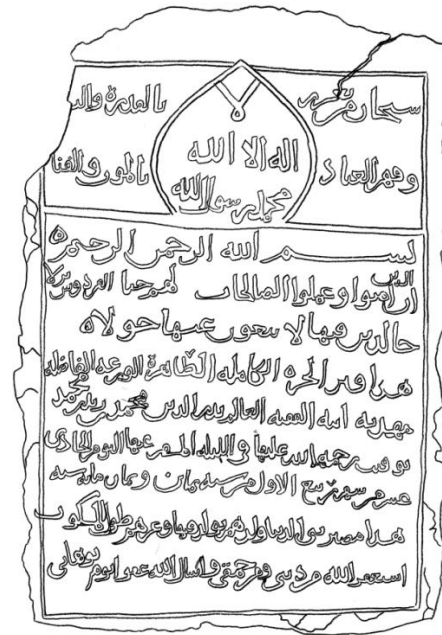 سبحان من تعزز بالقدرة والبـ
وقهر العباد بالموت والفنا
اله الا الله
محمد رسول الله
بسم الله الرحمن الرحيم
ان الذين امنوا وعملوا الصالحات لهم جنات الفردوس نزلا
خالدين فيها لا يبغون عنها حولا
هذا قبر الحرة الكاملة الطاهرة الفاضلة
مهدية ابنة الفقيه العالم بدر الدين محمد بن زيد بن محمد
توفيت رحمة الله عليها في الليلة المسفر عنها اليوم الحادي
عشر من شهر ربيع الاول من سنة ثمان وثمان مائة سنة
هذا مصير بني الدنيا وان فيها وغرهم طول
استغفر الله من ذنبي ومن حمقي واسال الله عفوا يوم